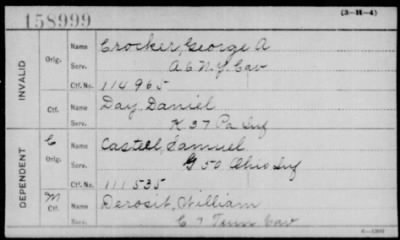 158999
(3-H-4)
INVALID
Orig. Name Crocker, George A
Serv. A 6 N.Y. Cav
Ctf. No. 114965
Ctf. Name Day Daniel
Serv. K 37 Pa Inf
DEPENDENT
C Orig. Name Castell, Samuel
Serv. G 50 Ohio Inf
Ctf. No. 111535
M Ctf. Name Derosit, William
Serv. C 7 Tenn Cav